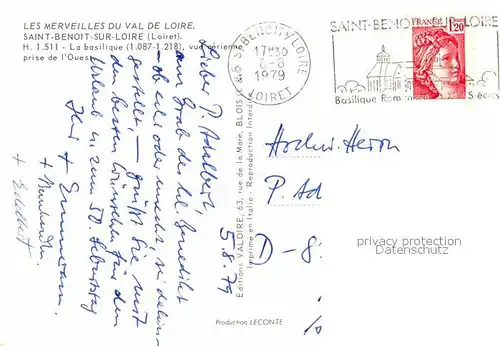 LES MERVEILLES DU VAL DE LOIRE.
SAINT-BENOIT-SUR-LOIRE (Loiret).
H. 1.511 - La basilique (1.087-1.218), vue aérienne
prise de l'Ouest
45 ST BENOIT S/LOIRE
17H30
6-8
1979
LOIRET
SAINT-BENOIT-SUR-LOIRE
Basilique Rom Siècles
FRANCE
1,20
5.8.79
Lieber P. Adalbert,
am Grab des hl. Benedikt
- ob echt oder unecht, sei dahin-
gestellt, - grüßt Sie mit
den besten Wünschen für den
Urlaub u. zum 50. Geburtstag
Ihr + Emmeram.
+ Edelbert
Editions VALOIRE, 63, rue de la Mare, BLOIS
Imprimé en Italie - Reproduction Interdite
Production LECONTE
Hochw. Herrn
P. Ad
D-8
privacy protection
Datenschutz